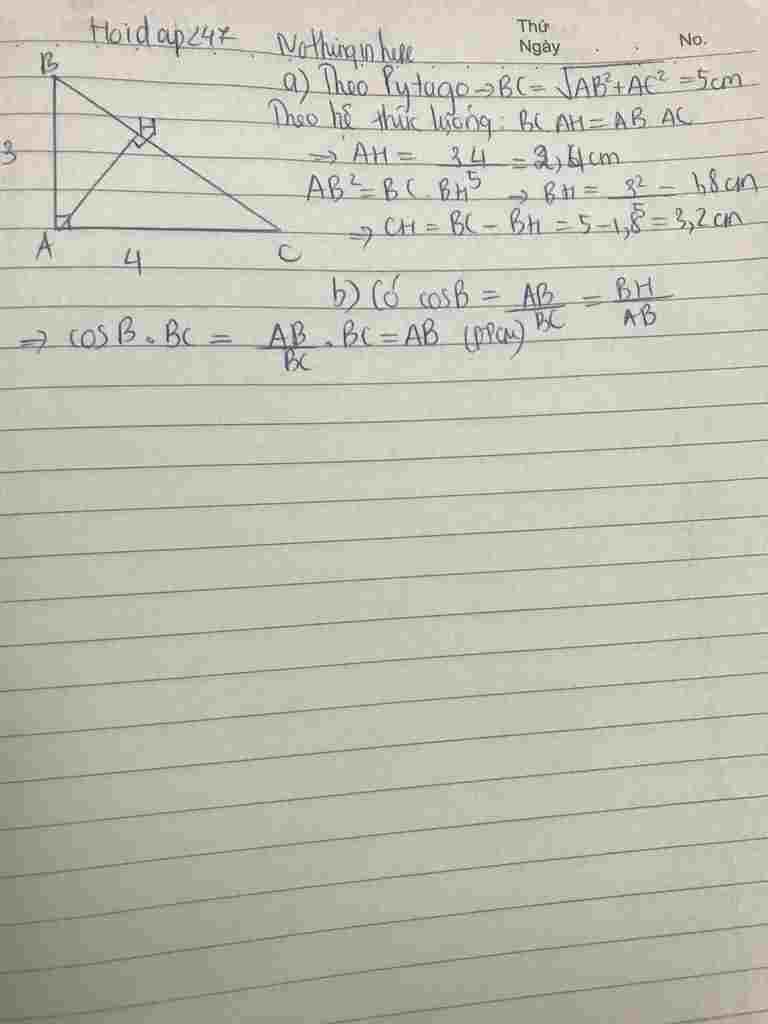 Hoidap247 Nothinginhere
Thứ
Ngày . . No.
B
a) Theo Pytago → BC = √AB²+AC² = 5cm
Theo hệ thức lượng: BC AH = AB AC
H
3
⇒ AH = 3 4 / 5 = 2,4cm
AB² = BC . BH → BH = 3² / 5 = 1,8cm
⇒ CH = BC - BH = 5 - 1,8 = 3,2cm
A 4 C
b) Có cosB = AB/BC = BH/AB
⇒ cosB . BC = AB/BC . BC = AB (đpcm)